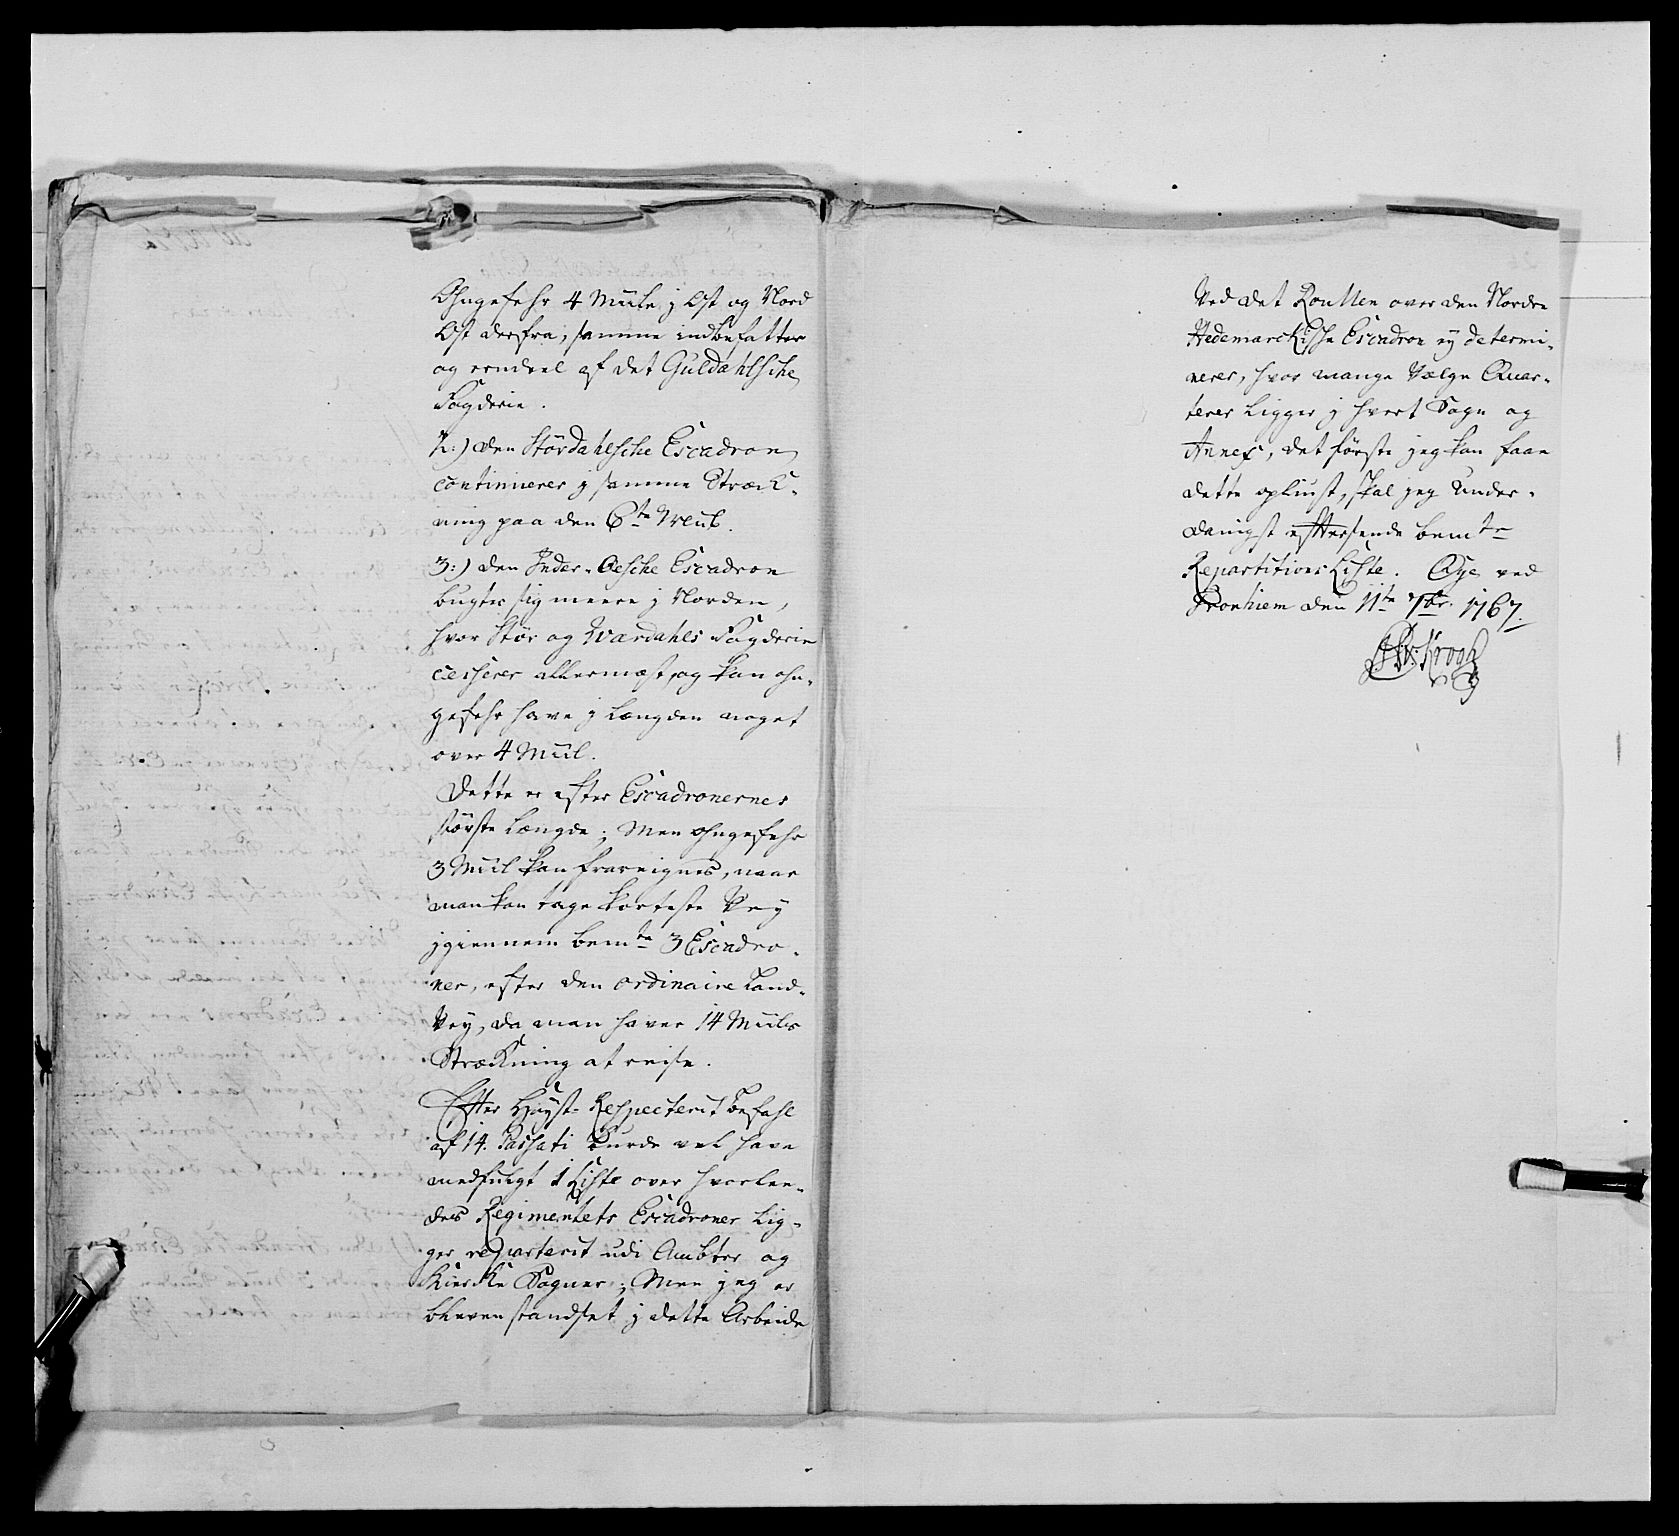 Ohngefehr 4 Miile j Ost og Nord
Ost derfra, samme indbefatter
og eendeel af det Guldahlsche
Fogderie.
2:) den Stördahlsche Escadron
continuerer j samme Stræck-
ning paa den 6te Miil.
3:) den Inder-Oesche Escadron
bugter sig meere j Norden,
hvor Stör og Wærdahls Fogderie
cesserer allermæst, og kan ohn-
gefehr have j Længden noget
over 4 Miil.
Dette er efter Escadronernes
störste Længde; Men ohngefehr
3 Miil kan frareignes, naar
man kan tage korteste Vey
jgiennem bemte 3 Escadro-
ner, efter den ordinaire Land-
Vey, da man haver 14 Miils
Strækning at reise.
Efter Høyst-Respecterit Befahl
af 14. Passati burde vel have
medfulgt 1 Liste over hvorlee-
des Regimentets Escadroner Lig-
ger reparterit udi Ambter og
Kircke Sogner; Men jeg er
bleven standset j dette Arbeide
Ved det Roullen over den Nordre
Hedemarckische Escadron ey determi-
nerer, hvor mange Vælge Quar-
terer Ligger j hvert Sogn og
Annex, det förste jeg kan faae
dette opliust, skal jeg Under-
danigst efftersende bemte
Repartitions Liste. Øye ved
Tronhiem den 11te 7br. 1767.
Krogh